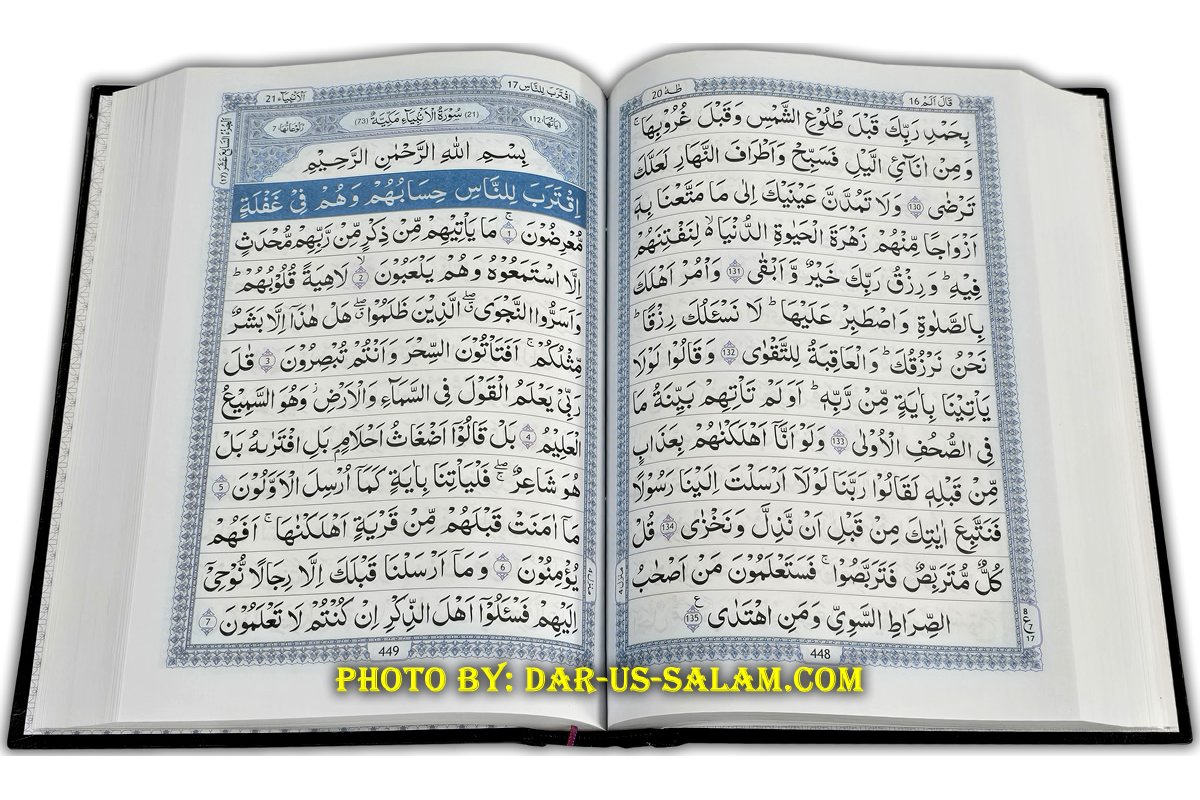 قَالَ اَلَمْ 16
طٰهٰ 20
بِحَمْدِ رَبِّكَ قَبْلَ طُلُوْعِ الشَّمْسِ وَقَبْلَ غُرُوْبِهَا ۚ
وَمِنْ اٰنَآئِ الَّيْلِ فَسَبِّحْ وَاَطْرَافَ النَّهَارِ لَعَلَّكَ
تَرْضٰى 130 وَلَا تَمُدَّنَّ عَيْنَيْكَ اِلٰى مَا مَتَّعْنَا بِهٖٓ
اَزْوَاجًا مِّنْهُمْ زَهْرَةَ الْحَيٰوةِ الدُّنْيَا ۙ لِنَفْتِنَهُمْ
فِيْهِ ؕ وَرِزْقُ رَبِّكَ خَيْرٌ وَّاَبْقٰى 131 وَاْمُرْ اَهْلَكَ
بِالصَّلٰوةِ وَاصْطَبِرْ عَلَيْهَا ؕ لَا نَسْئَلُكَ رِزْقًا ؕ
نَحْنُ نَرْزُقُكَ ؕ وَالْعَاقِبَةُ لِلتَّقْوٰى 132 وَقَالُوْا لَوْلَا
يَاْتِيْنَا بِاٰيَةٍ مِّنْ رَّبِّهٖ ؕ اَوَلَمْ تَاْتِهِمْ بَيِّنَةُ مَا
فِى الصُّحُفِ الْاُوْلٰى 133 وَلَوْ اَنَّآ اَهْلَكْنٰهُمْ بِعَذَابٍ
مِّنْ قَبْلِهٖ لَقَالُوْا رَبَّنَا لَوْلَآ اَرْسَلْتَ اِلَيْنَا رَسُوْلًا
فَنَتَّبِعَ اٰيٰتِكَ مِنْ قَبْلِ اَنْ نَّذِلَّ وَنَخْزٰى 134 قُلْ
كُلٌّ مُّتَرَبِّصٌ فَتَرَبَّصُوْا ۚ فَسَتَعْلَمُوْنَ مَنْ اَصْحٰبُ
الصِّرَاطِ السَّوِيِّ وَمَنِ اهْتَدٰى 135
8
ع 7
17
448
اِقْتَرَبَ لِلنَّاسِ 17
اَلْاَنْۢبِيَآء 21
اٰيَاتُهَا: 112
(21) سُوْرَةُ الْاَنْۢبِيَآءِ مَكِّيَّةٌ (73)
رُكُوْعَاتُهَا: 7
بِسْمِ اللهِ الرَّحْمٰنِ الرَّحِيْمِ
اِقْتَرَبَ لِلنَّاسِ حِسَابُهُمْ وَهُمْ فِىْ غَفْلَةٍ
مُّعْرِضُوْنَ ۚ 1 مَا يَاْتِيْهِمْ مِّنْ ذِكْرٍ مِّنْ رَّبِّهِمْ مُّحْدَثٍ
اِلَّا اسْتَمَعُوْهُ وَهُمْ يَلْعَبُوْنَ ۙ 2 لَاهِيَةً قُلُوْبُهُمْ ؕ
وَاَسَرُّوا النَّجْوَى ۖ الَّذِيْنَ ظَلَمُوْا ۖ هَلْ هٰذَآ اِلَّا بَشَرٌ
مِّثْلُكُمْ ۚ اَفَتَاْتُوْنَ السِّحْرَ وَاَنْتُمْ تُبْصِرُوْنَ 3 قٰلَ
رَبِّيْ يَعْلَمُ الْقَوْلَ فِى السَّمَآءِ وَالْاَرْضِ ۫ وَهُوَ السَّمِيْعُ
الْعَلِيْمُ 4 بَلْ قَالُوْٓا اَضْغَاثُ اَحْلَامٍ بَلِ افْتَرٰىهُ بَلْ
هُوَ شَاعِرٌ ۖۚ فَلْيَاْتِنَا بِاٰيَةٍ كَمَآ اُرْسِلَ الْاَوَّلُوْنَ 5
مَآ اٰمَنَتْ قَبْلَهُمْ مِّنْ قَرْيَةٍ اَهْلَكْنٰهَا ۚ اَفَهُمْ
يُؤْمِنُوْنَ 6 وَمَآ اَرْسَلْنَا قَبْلَكَ اِلَّا رِجَالًا نُّوْحِىْٓ
اِلَيْهِمْ فَسْئَلُوْٓا اَهْلَ الذِّكْرِ اِنْ كُنْتُمْ لَا تَعْلَمُوْنَ 7
449
PHOTO BY: DAR-US-SALAM.COM